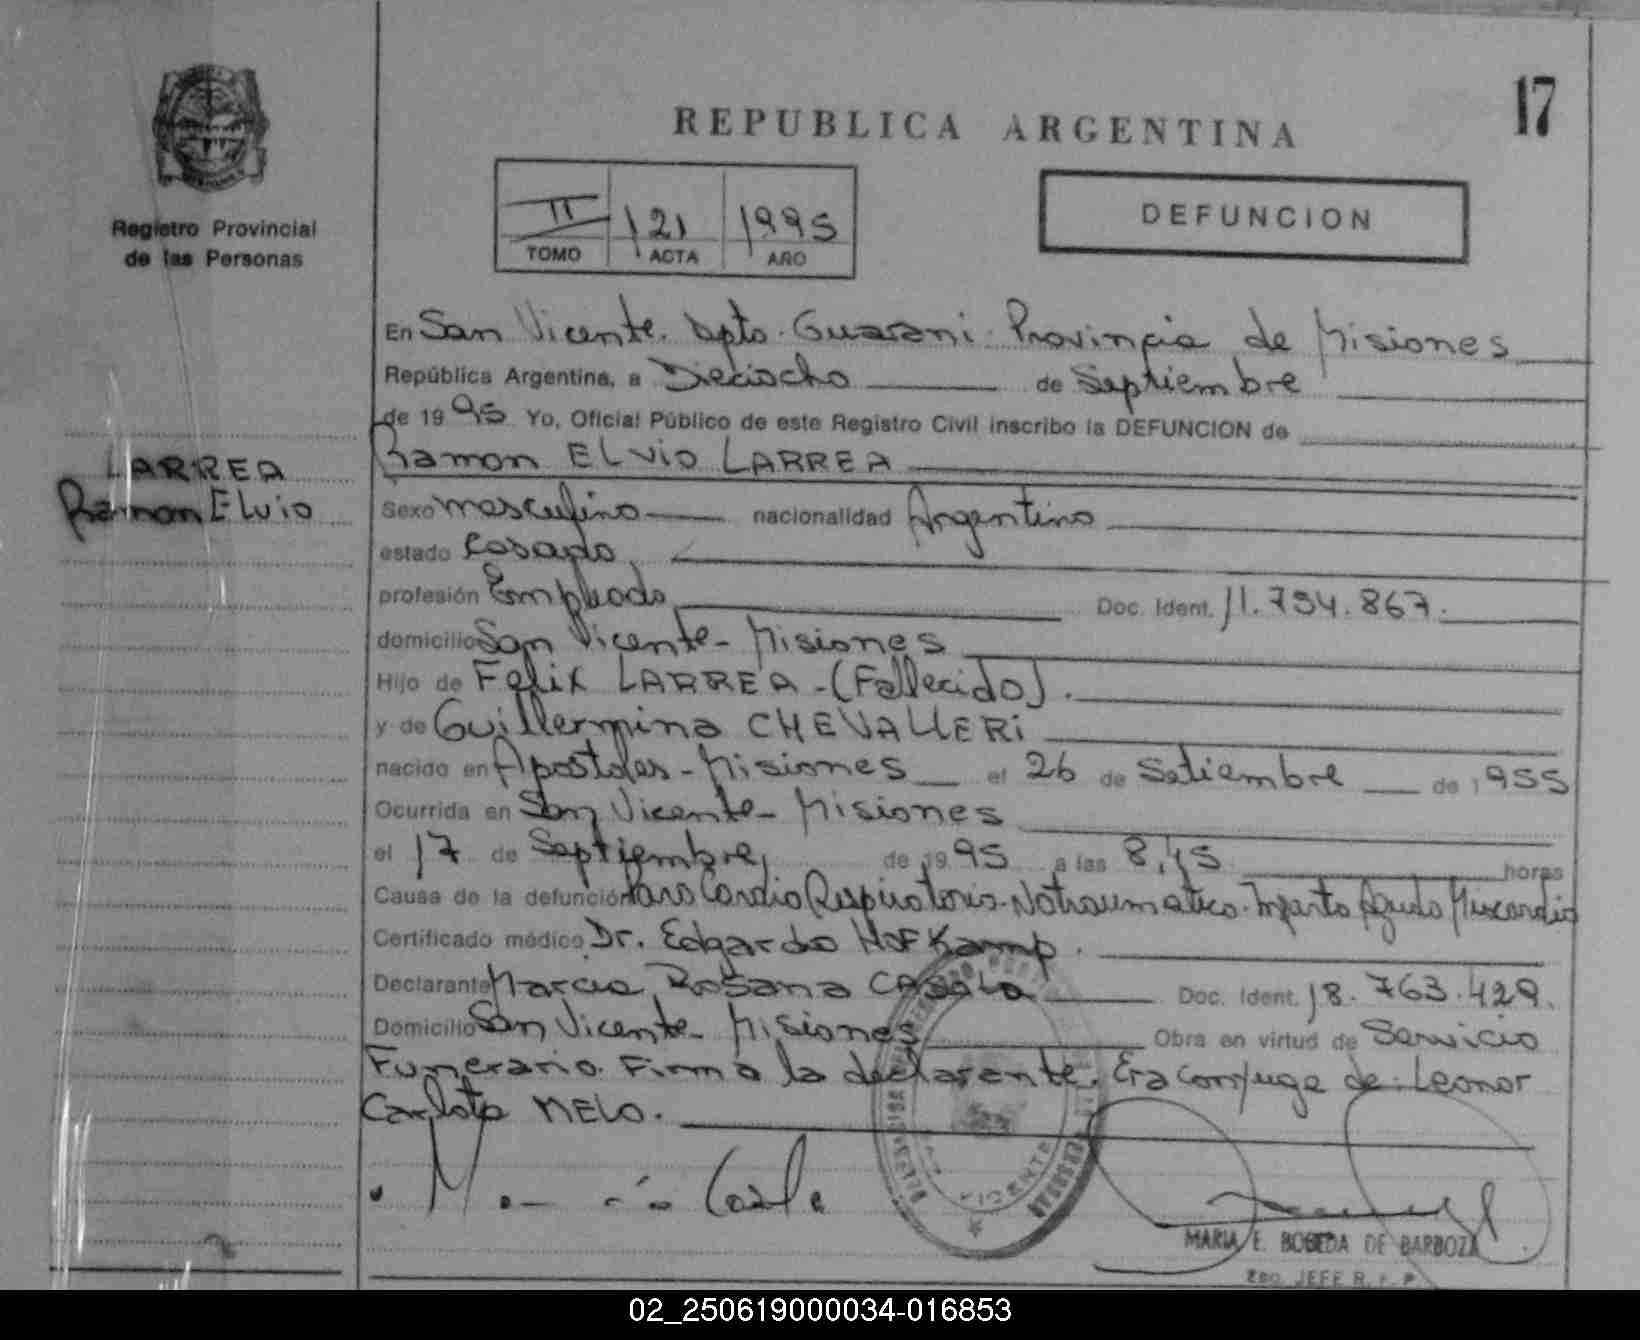 17
REPUBLICA ARGENTINA
Registro Provincial
de las Personas
II 121 1995
TOMO ACTA AÑO
DEFUNCION
En San Vicente. Dpto. Guarani. Provincia de Misiones
República Argentina, a Dieciocho de Septiembre
de 1995 Yo, Oficial Público de este Registro Civil inscribo la DEFUNCION de
Ramon ELVIO LARREA
LARREA
Ramon Elvio
Sexo masculino nacionalidad Argentino
estado Casado
profesión Empleado Doc. Ident. 11.794.867.
domicilio San Vicente - Misiones
Hijo de Felix LARREA - (Fallecido).
y de Guillermina CHEVALLERI
nacido en Apostoles - Misiones el 26 de Setiembre de 1955
Ocurrida en San Vicente - Misiones
el 17 de Septiembre, de 1995 a las 8,45 horas
Causa de la defunción Paro Cardio Respiratorio. No traumatico. Infarto Agudo Miocardio
Certificado médico Dr. Edgardo HOFKamp.
Declarante Marcia Rosana CASOLA Doc. Ident. 18.763.429.
Domicilio San Vicente - Misiones Obra en virtud de Servicio
Funerario. Firma la declarante. Era conyuge de: Leonor
Carlota MELO.
VICENTE
MARIA E. BOBEDA DE BARBOZA
JEFE R. P. P.
02_250619000034-016853